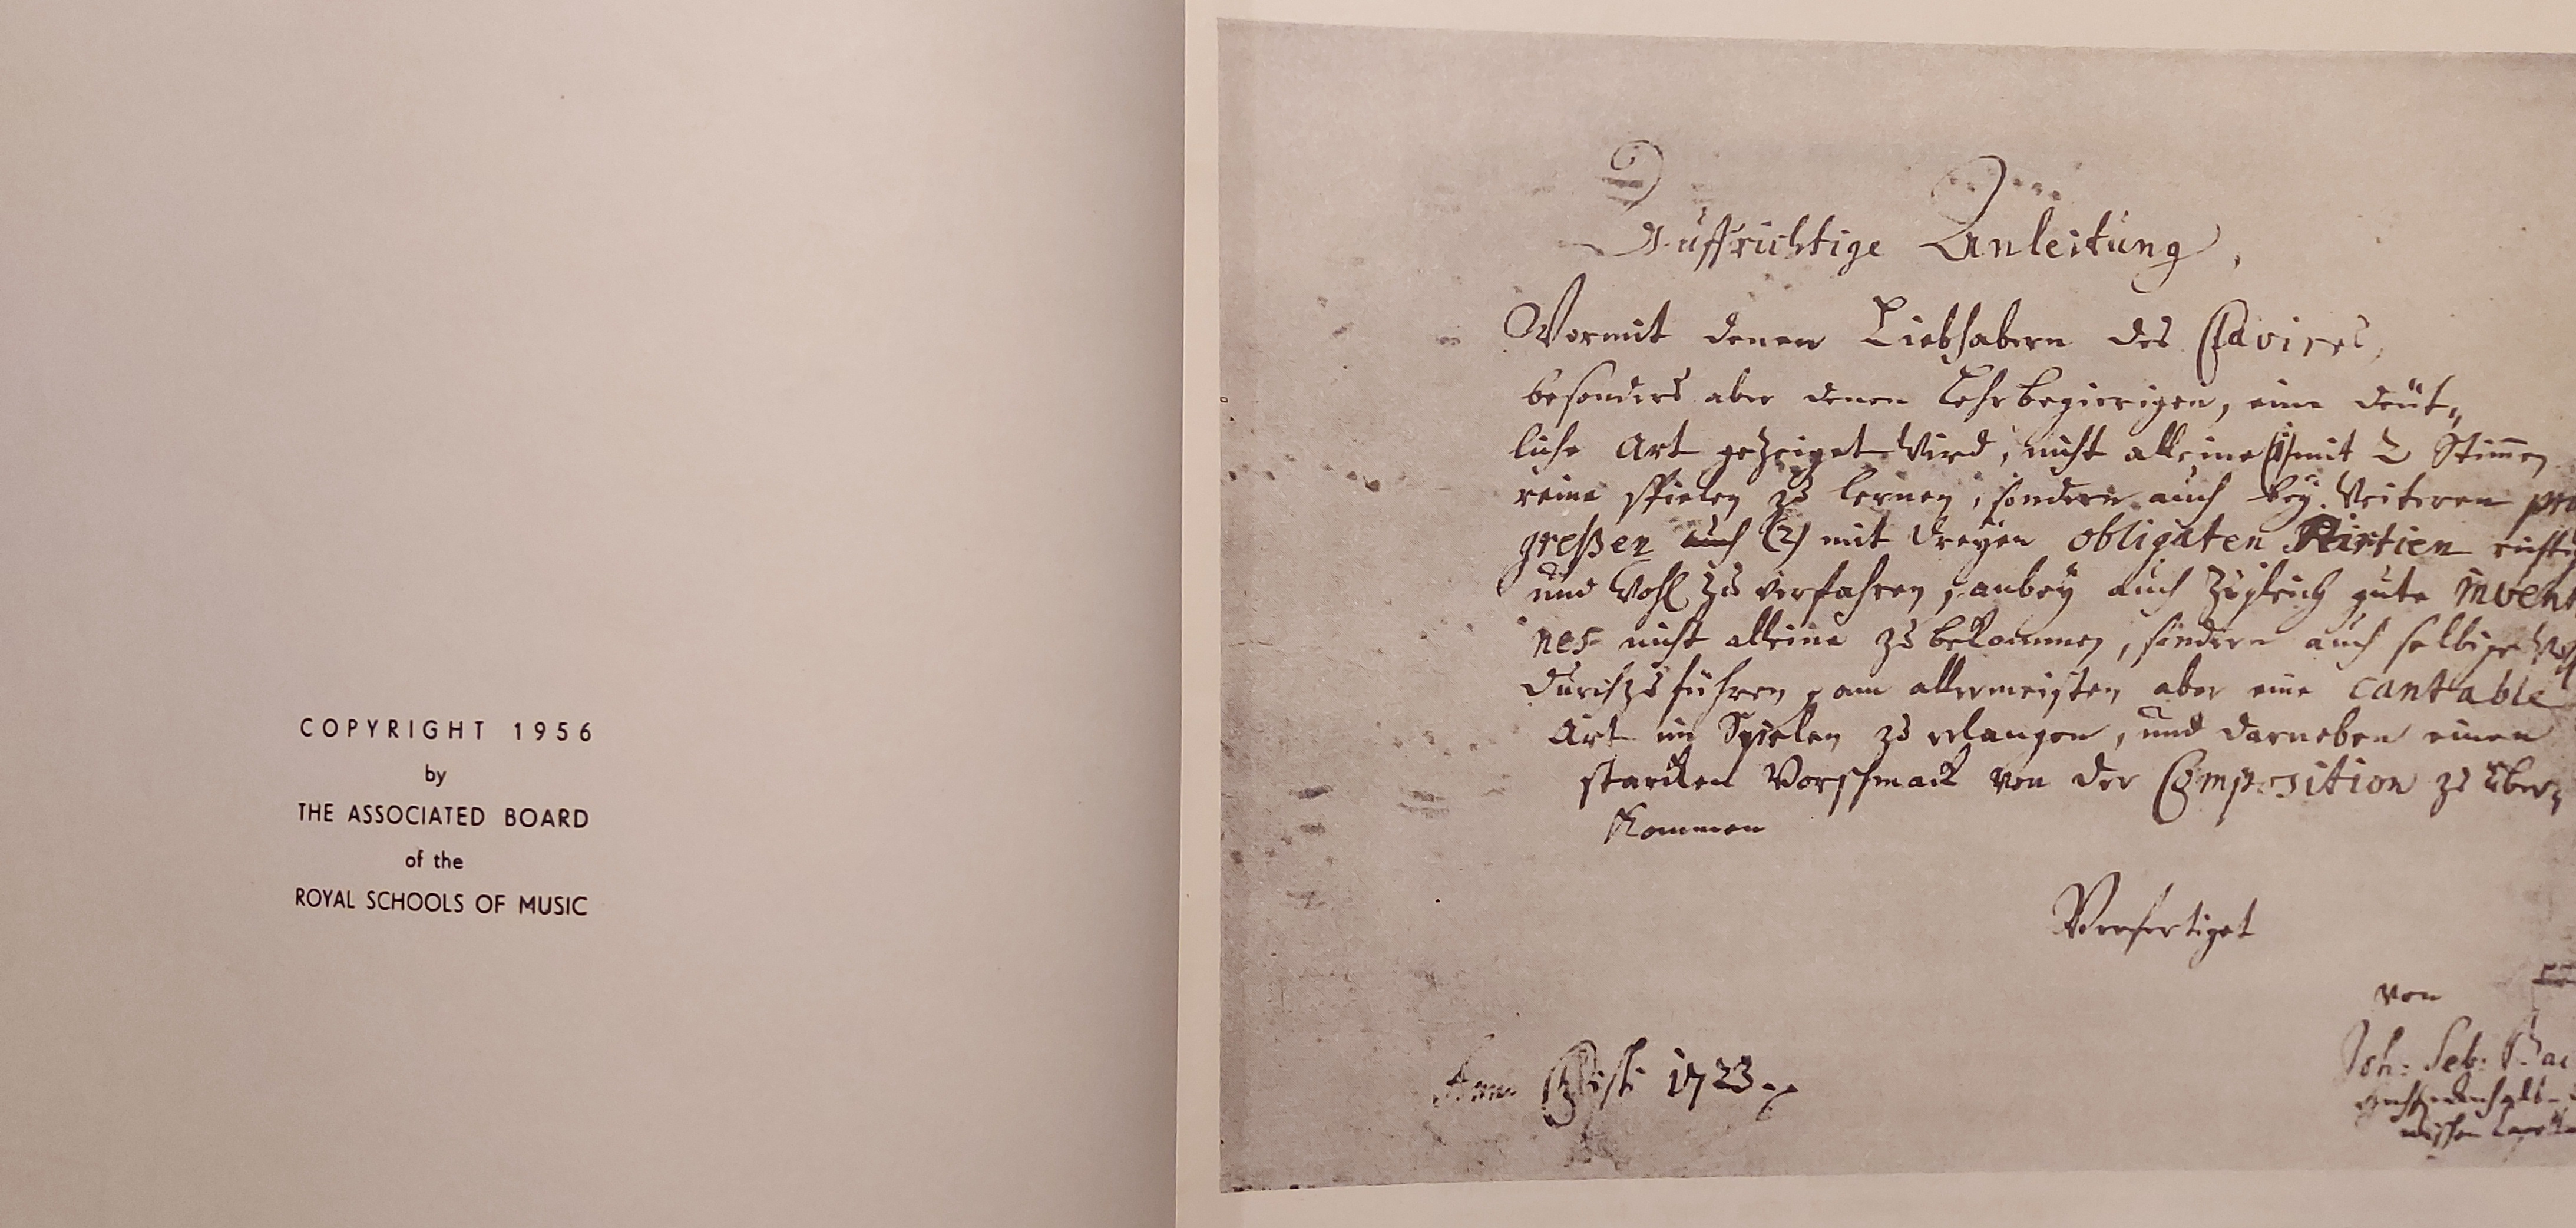 COPYRIGHT 1956
by
THE ASSOCIATED BOARD
of the
ROYAL SCHOOLS OF MUSIC
Auffrichtige Anleitung,
Wormit denen Liebhabern des Clavires,
besonders aber denen Lehrbegierigen, eine deüt„
liche Art gezeiget wird, nicht alleine (1) mit 2 Stim̄en
reine spielen zu lernen, sondern auch bey weiteren pro
greßen auch (2) mit dreyen obligaten Partien richtig
und wohl zu verfahren, anbey auch zugleich gute invent
nes nicht alleine zu bekommen, sondern auch selbige wohl
durchzuführen, am allermeisten aber eine cantable
Art im Spielen zu erlangen, und darneben einen
starcken Vorschmack von der Composition zu über„
kommen
Verfertiget
von
Joh: Seb: Bac
Anno Christi 1723.